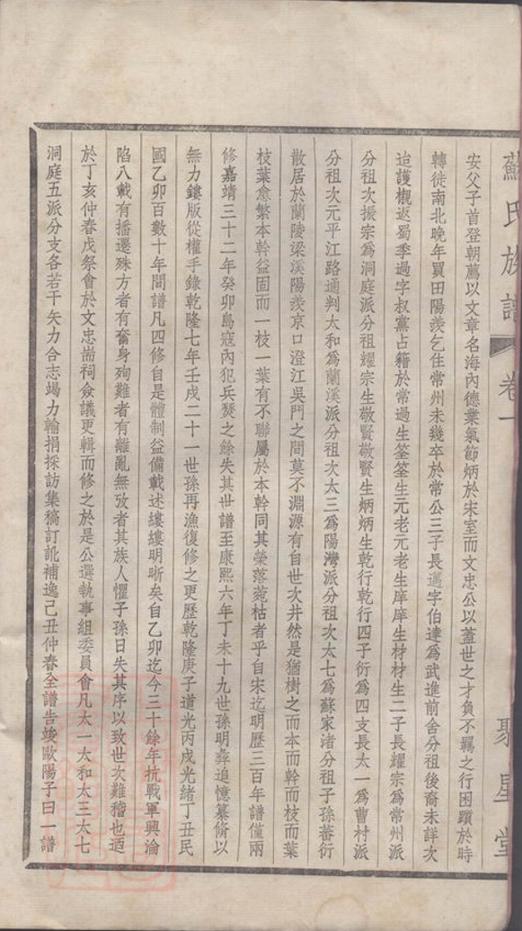 蘇氏族譜 卷一 聚星堂
安父子首登朝薦以文章名海內德業氣節炳於宋室而文忠公以蓋世之才負不羈之行困躓於時
轉徙南北晚年買田陽羨乞住常州未幾卒於常公三子長邁字伯達爲武進前舍分祖後裔未詳次
迨護櫬返蜀季過字叔黨占籍於常過生筌筌生元老元老生庠庠生材材生二子長耀宗爲常州派
分祖次振宗爲洞庭派分祖耀宗生敬賢敬賢生炳炳生乾行乾行四子衍爲四支長太一爲曹村派
分祖次元平江路通判太和爲蘭溪派分祖次太三爲陽灣派分祖次太七爲蘇家渚分祖子孫蕃衍
散居於蘭陵梁溪陽羨京口澄江吳門之間莫不淵源有自世次井然是猶樹之而本而幹而枝而葉
枝葉愈繁本幹益固而一枝一葉有不聯屬於本幹同其榮落菀枯者乎自宋迄明歷三百年譜僅兩
修嘉靖三十二年癸卯島寇內犯兵燹之餘失其世譜至康熙六年丁未十九世孫明彝追憶纂脩以
無力鏤版從權手錄乾隆七年壬戌二十一世孫再漁復修之更歷乾隆庚子道光丙戌光緒丁丑民
國乙卯百數十年間譜凡四修自是體制益備載述縷縷明晰矣自乙卯迄今三十餘年抗戰軍興淪
陷八載有播遷殊方者有奮身殉難者有離亂無攷者其族人懼子孫日失其序以致世次難稽也迺
於丁亥仲春戊祭會於文忠耑祠僉議更輯而修之於是公選執事組委員會凡太一太和太三太七
洞庭五派分支各若干矢力合志竭力輸捐採訪集稿訂訛補逸己丑仲春全譜告竣歐陽子曰一譜